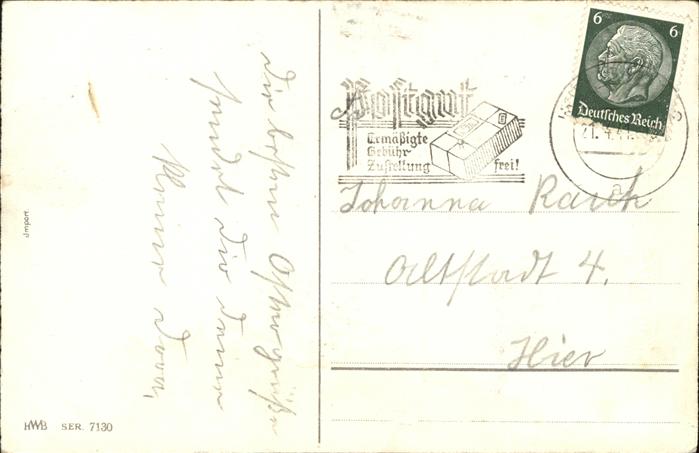 Die besten Ostergrüße
sendet dir deine
kleine Dora,
Import.
HWB SER. 7130
Postgut
Ermäßigte
Gebühr
Zustellung frei!
6 6
Deutsches Reich
21.4.41
a
Johanna Rauh
Altstadt 4.
Hier